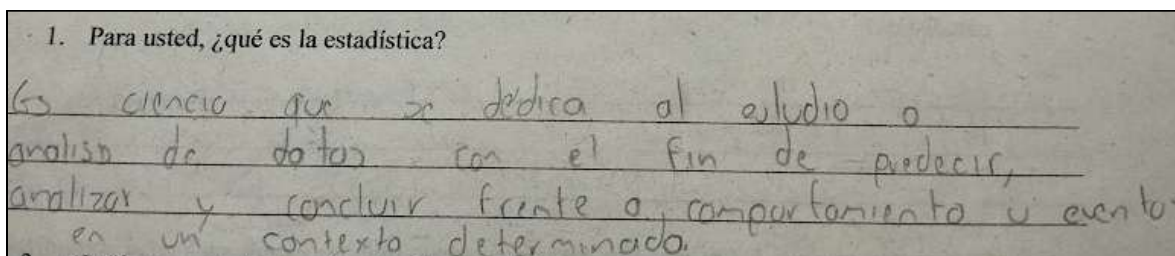 1. Para usted, ¿qué es la estadística?
Es ciencia que se dedica al estudio o
analisis de datos con el fin de predecir,
analizar y concluir frente a, comportamiento u evento
en un contexto determinado.